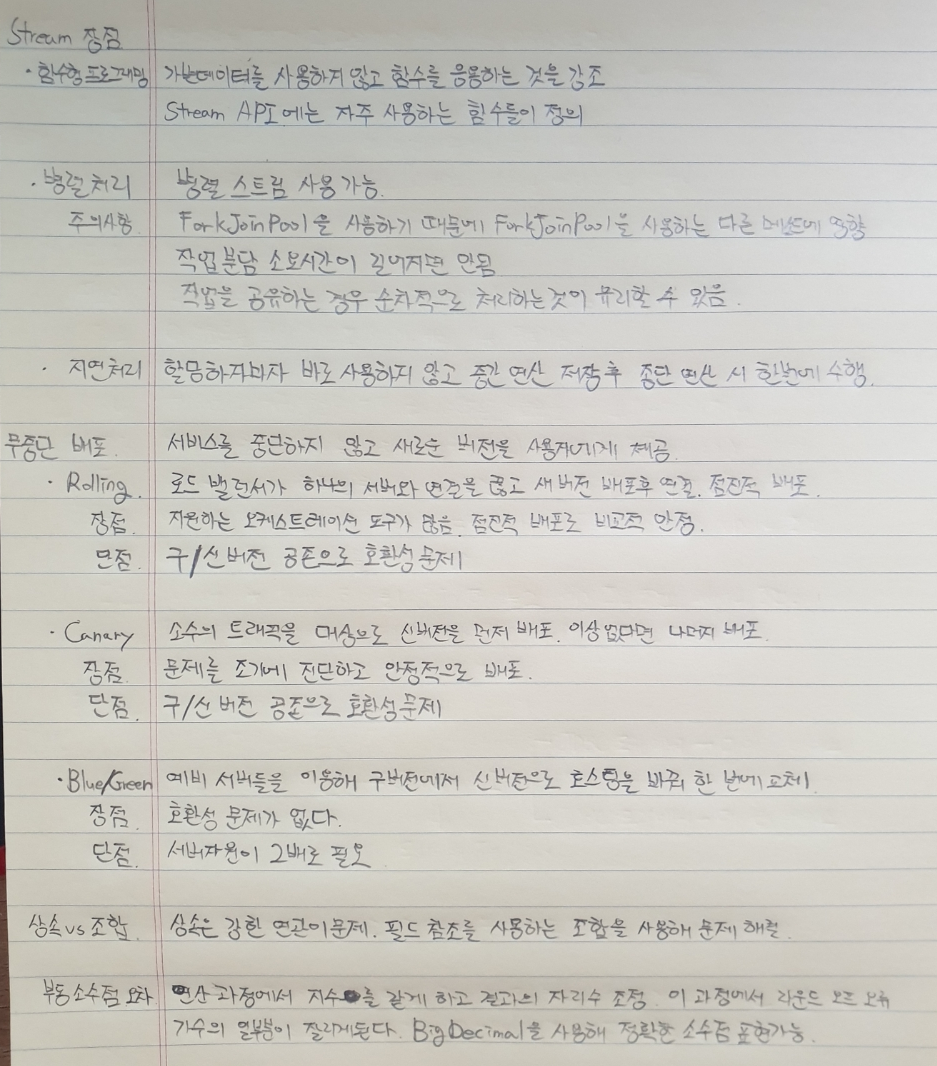 Stream 장점
· 함수형 프로그래밍 가변데이터를 사용하지 않고 함수를 응용하는 것을 강조
Stream API에는 자주 사용하는 함수들이 정의
· 병렬처리 병렬 스트림 사용 가능.
주의사항 ForkJoinPool을 사용하기 때문에 ForkJoinPool을 사용하는 다른 메서드에 영향
작업분담 소모시간이 길어지면 안됨
작업을 공유하는 경우 순차적으로 처리하는 것이 유리할 수 있음.
· 지연처리 할당하자마자 바로 사용하지 않고 중간 연산 저장 후 종단 연산 시 한번에 수행.
무중단 배포. 서비스를 중단하지 않고 새로운 버전을 사용자에게 제공.
· Rolling. 로드 밸런서가 하나의 서버와 연결을 끊고 새버전 배포후 연결. 점진적 배포.
장점. 지원하는 오케스트레이션 도구가 많음. 점진적 배포로 비교적 안정.
단점. 구/신 버전 공존으로 호환성 문제
· Canary 소수의 트래픽을 대상으로 신버전을 먼저 배포. 이상 없다면 나머지 배포.
장점. 문제를 조기에 진단하고 안정적으로 배포.
단점. 구/신 버전 공존으로 호환성 문제
· Blue/Green 예비 서버들을 이용해 구버전에서 신버전으로 호스팅을 바꿔 한 번에 교체.
장점. 호환성 문제가 없다.
단점. 서버자원이 2배로 필요
상속 vs 조합. 상속은 강한 연관이 문제. 필드 참조를 사용하는 조합을 사용해 문제 해결.
부동 소수점 오차 연산 과정에서 지수를 같게 하고 결과의 자리수 조정. 이 과정에서 라운드 오프 오류
가수의 일부분이 잘리게된다. BigDecimal을 사용해 정확한 소수점 표현가능.